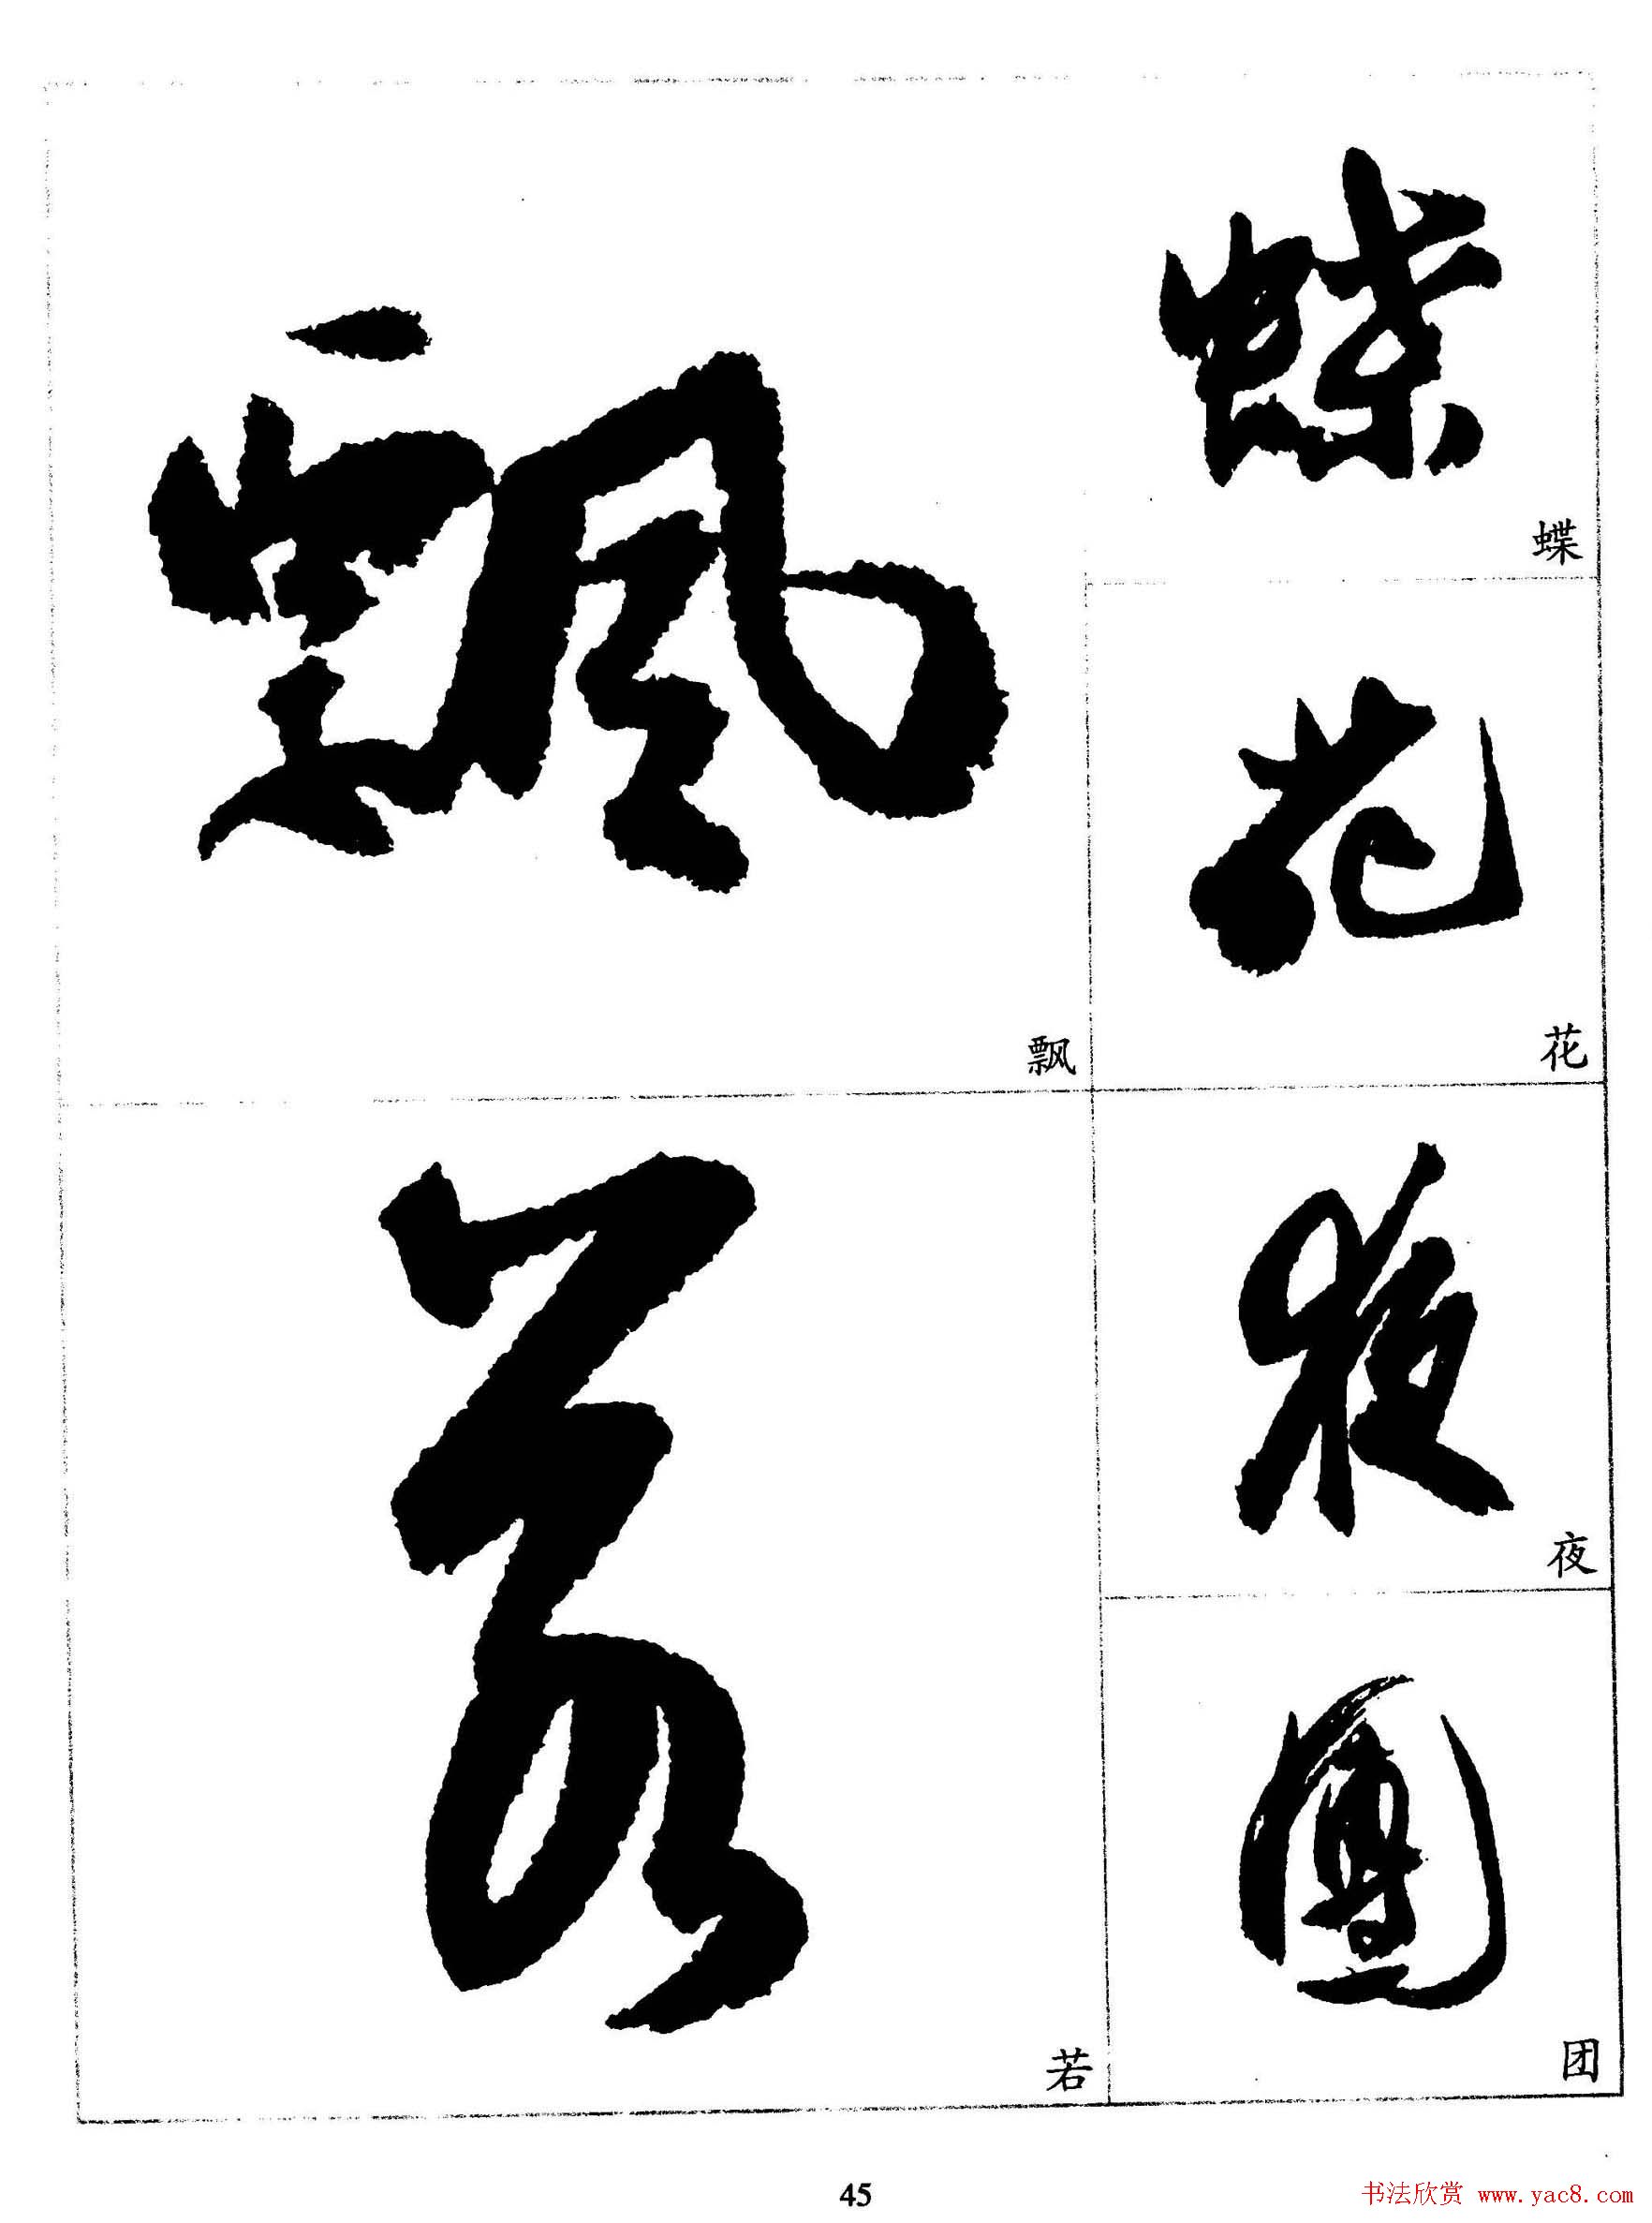 蝶
蝶
花
花
夜
夜
團
团
飄
飘
若
若
45
书法欣赏 www.yac8.com